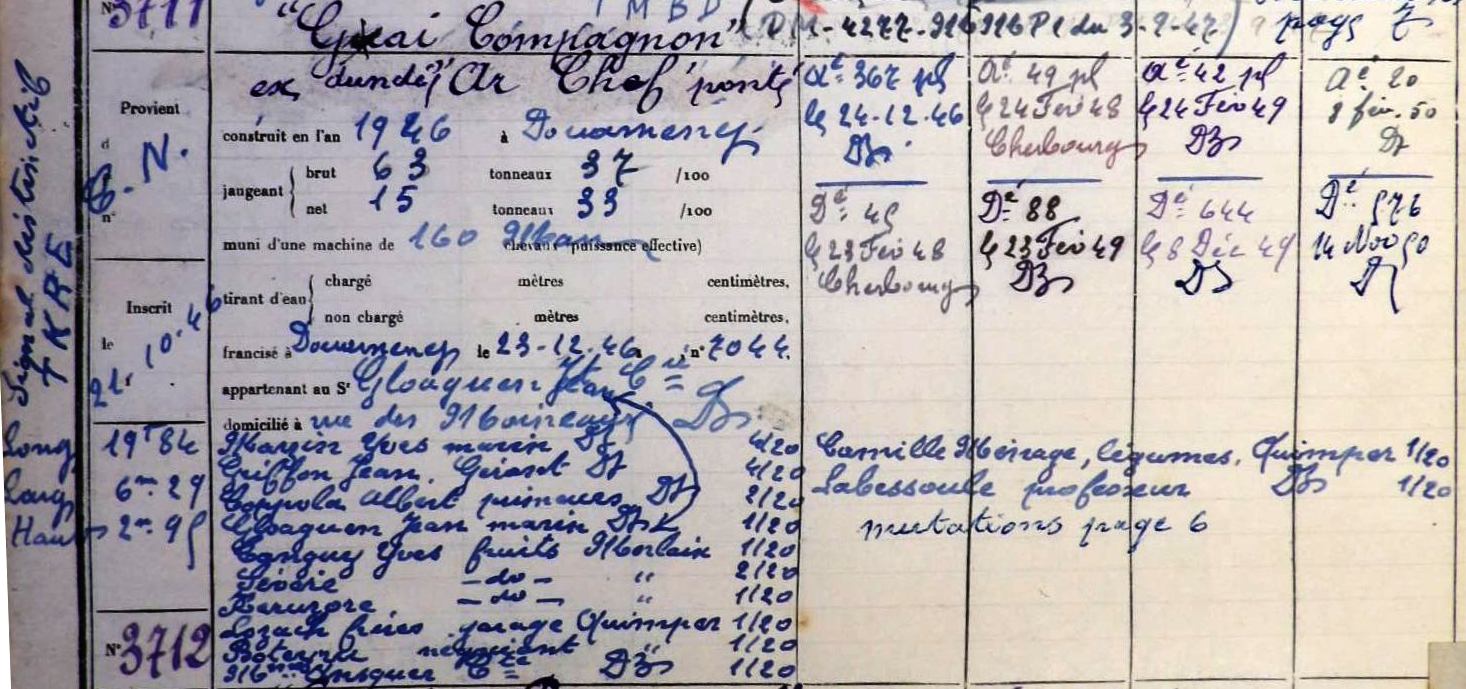 N° 3711
"Gai Compagnon" (DM - 4277-916 916 P1 du 3-2-47) page 7
ex dundé "Ar Chef" ponté
Provient
d
C.N.
n°
construit en l'an 1946 à Douarnenez
jaugeant brut 63 tonneaux 37 /100
net 15 tonneaux 33 /100
muni d'une machine de 160 chevaux (puissance effective)
tirant d'eau chargé mètres centimètres,
non chargé mètres centimètres,
Inscrit
le
21.10.46
francisé à Douarnenez le 23-12.46 n° 7044.
appartenant au Sr Gloaguen Jean Cie
domicilié à rue des Moineaux Dz
Signal distinctif
TKRE
Long 19m 84
Larg 6m 29
Haut 2m 95
Marzin Yves marin Dz 4/20
Griffon Jean. Gérant Dz 4/20
Coppola Albert primeurs Dz 2/20
Gloaguen Jean marin Dz 1/20
Tanguy Yves fruits Morlaix 1/20
Sévère -do- " 2/20
-do- " 1/20
Lozach frères garage Quimper 1/20
négociant " 1/20
Dz 1/20
N° 3712
Ae 367 pl
le 24-12-46
Dz
De 45
le 23 Fév 48
Cherbourg
Ae 49 pl
le 24 Fév 48
Cherbourg
De 88
le 23 Fév 49
Dz
Ae 42 pl
le 24 Fév 49
Dz
De 644
le 8 Déc 49
Dz
Ae 20
8 fév. 50
Dz
De 576
14 Nov 50
Dz
Camille Ménage, légumes, Quimper 1/20
Labessoule professeur Dz 1/20
mutations page 6